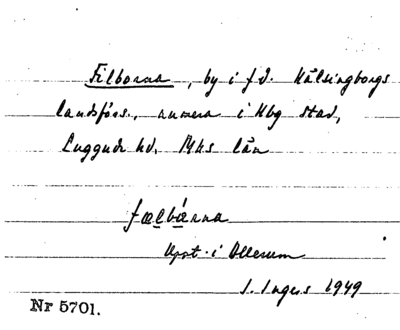 Filborna, by i f.d. Hälsingborgs
landsförs., numera i Hbg stad,
Luggude hd, Mhs län
fælbæ̀rna
Uppt. i Allerum
I. Ingers 1949
Nr 5701.